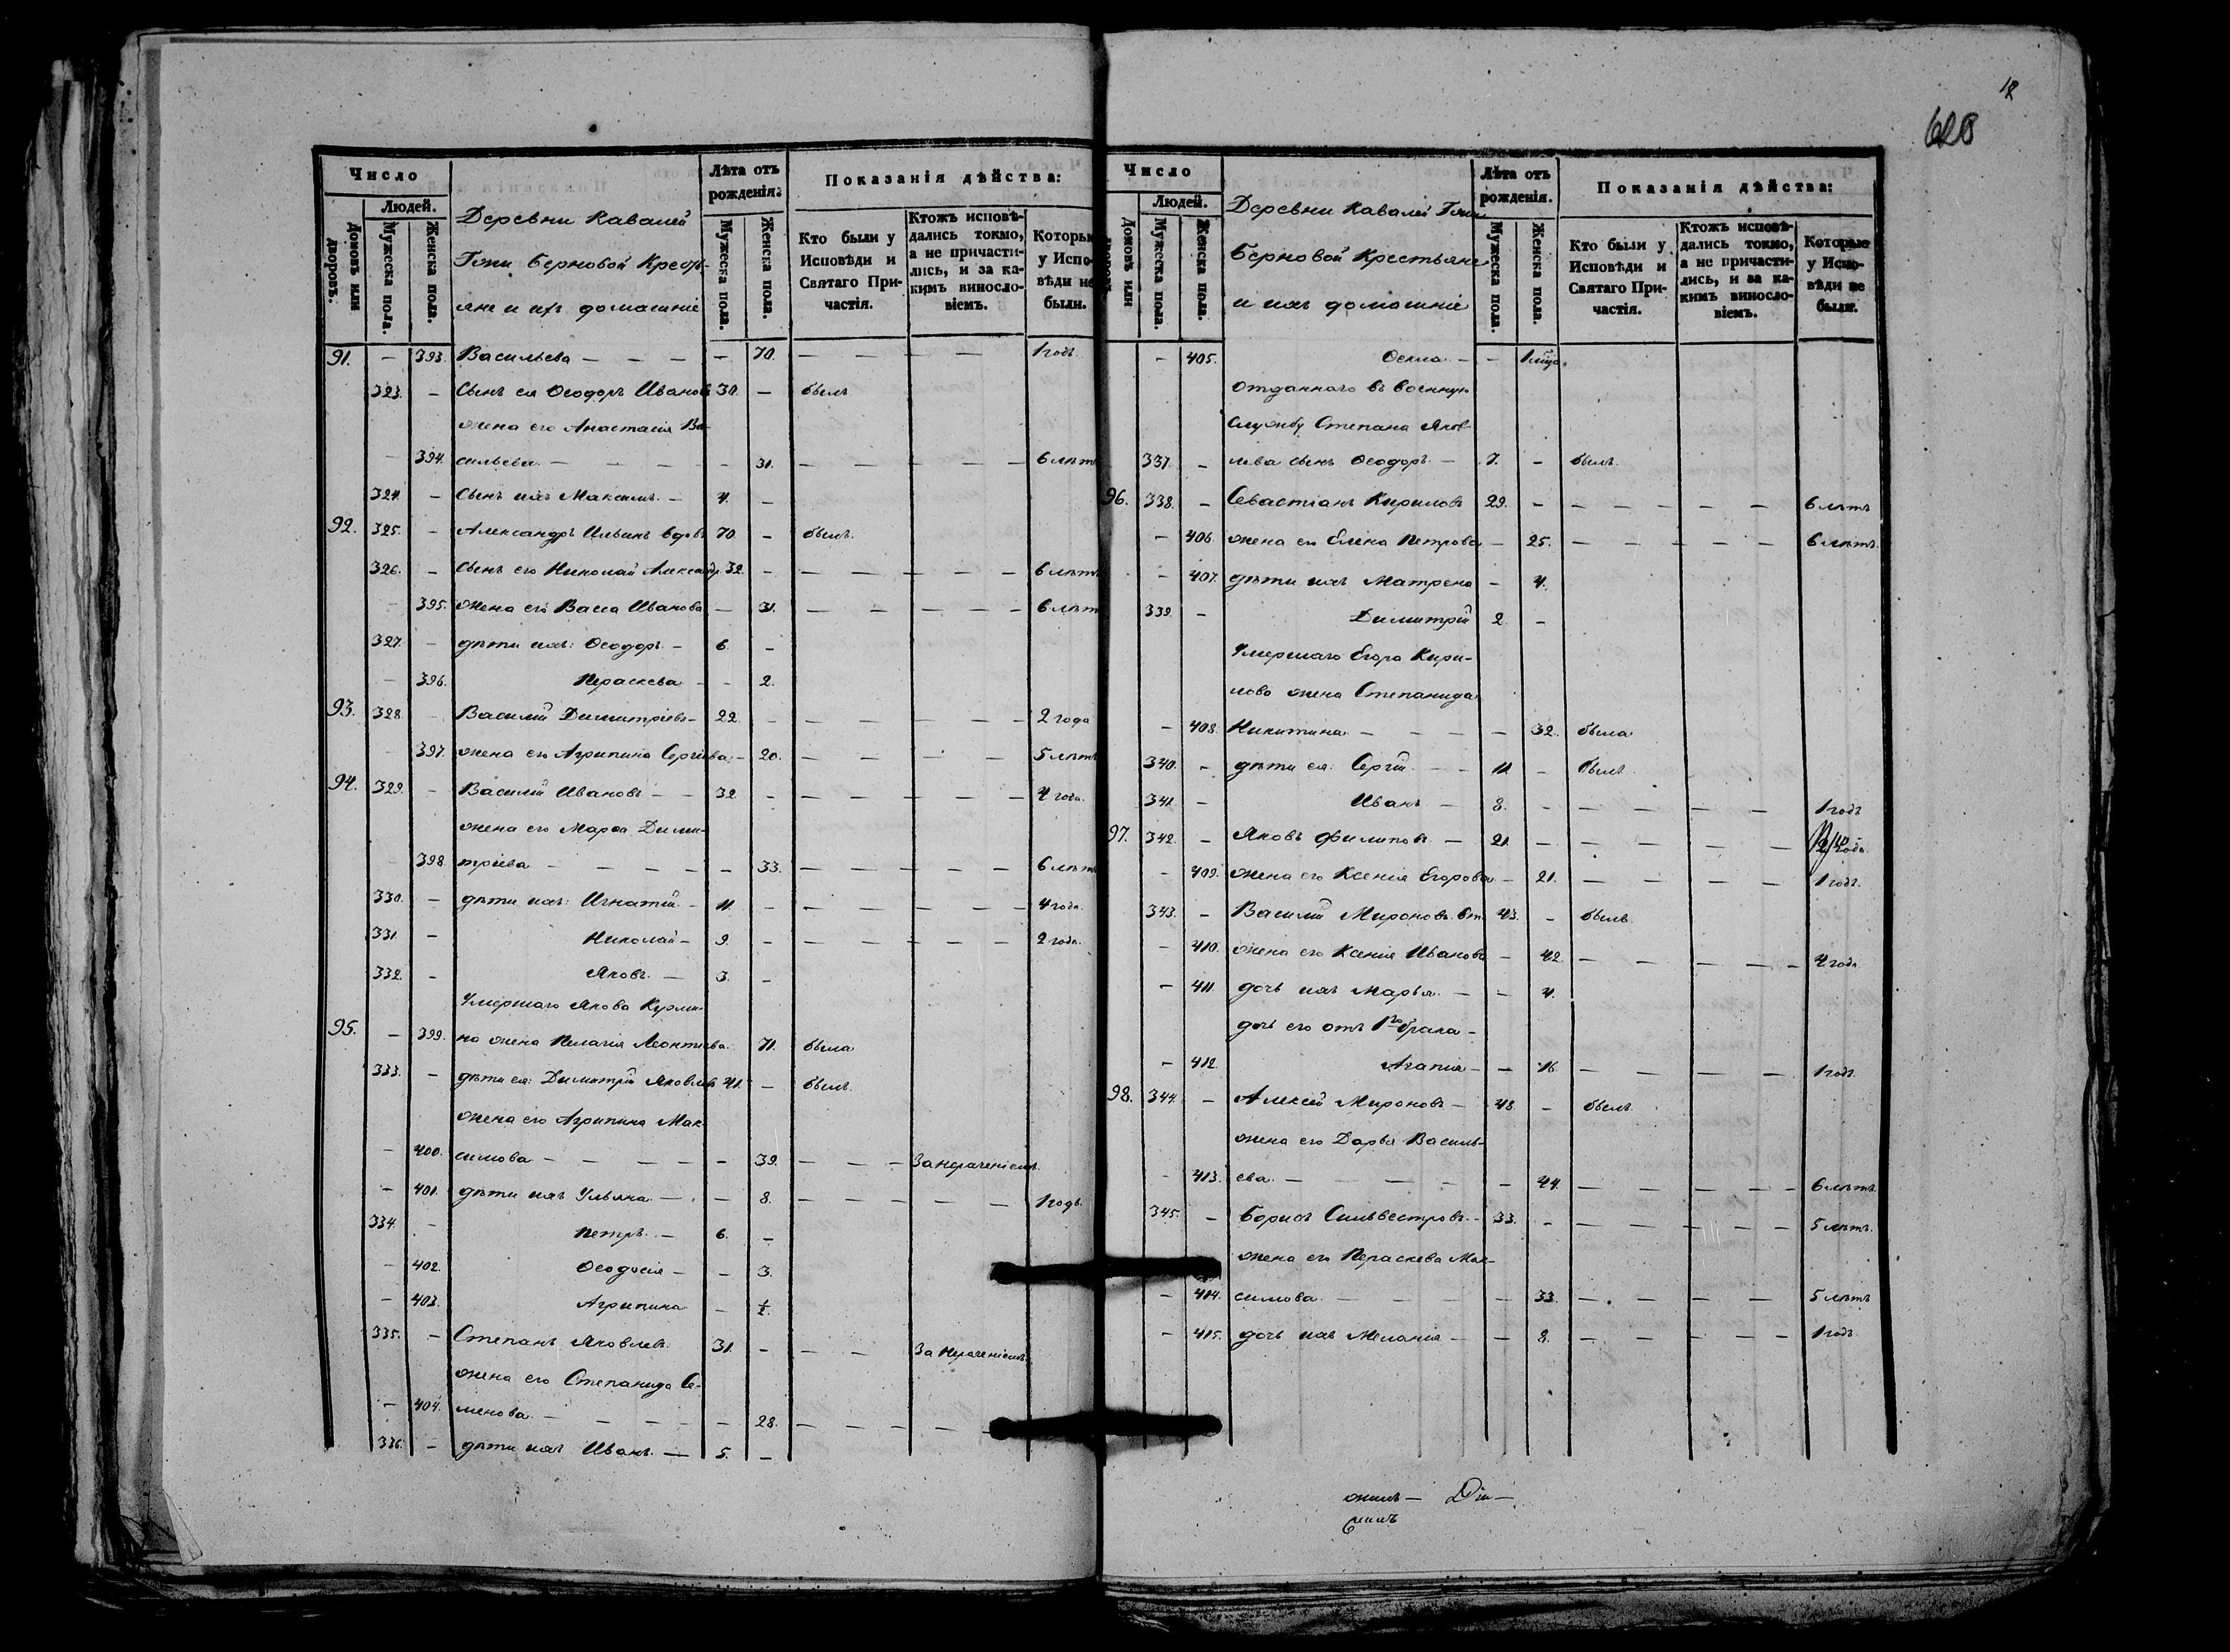 18
628
Число
Людей.
Домовъ или дворовъ.
Мужеска пола.
Женска пола.
Деревни Кавалей
Гжи Берновой Кресть-
яне и ихъ домашніе
Лѣта отъ рожденія:
Мужеска пола.
Женска пола.
Показанія дѣйства:
Кто были у Исповѣди и Святаго Причастія.
Ктожъ исповѣдались токмо, а не причастились, и за какимъ винословіемъ.
Которые у Исповѣди не были.
91. — 393. Васильева — — — — 70. — — — — 1 годъ.
323. — Сынъ ея Ѳеодоръ Иванов 30. — былъ
жена его Анастасія Ва-
— 394. сильева — — — — 31. — — — — — 6 лѣтъ
324. — Сынъ ихъ Максимъ. — 4. —
92. 325. — Александръ Ильинъ вдовъ 70 — былъ.
326. — Сынъ его Николай Александр. 32. — — — — — — 6 лѣтъ
— 395. жена его Васса Иванова — 31. — — — — — 6 лѣтъ
327. — дѣти ихъ: Ѳеодоръ — 6. —
— 396. Параскева — — 2.
93. 328. — Василій Димитріевъ — 22. — — — — — — 2 года
— 397. жена его Агрипина Сергіева — 20. — — — — 5 лѣтъ
94. 329. — Василій Ивановъ — — 32. — — — — — — 4 года.
жена его Марѳа Дими-
— 398. тріева — — — — — 33. — — — — — 6 лѣтъ
330. — дѣти ихъ: Игнатій — 11. — — — — — — 4 года.
331. — Николай — 9. — — — — — — 2 года.
332. — Яковъ. — 3. —
Умершаго Якова Курми-
95. — 399. на жена Пелагія Леонтіева. 71. была
333. — дѣти ея: Димитрій Яковлевъ 41. — былъ.
жена его Агрипина Мак-
— 400. симова — — — — — 39. — — — За нераченіемъ.
— 401. дѣти ихъ Ульяна. — — 8. — — — — — 1 годъ.
334. — Петръ. — 6. —
— 402. Ѳеодосія — — 3.
— 403. Агрипина — ½.
335. — Степанъ Яковлевъ. 31. — — — За нераченіемъ.
жена его Степанида Се-
— 404. менова. — — — — — 28. — — — — —
336. — дѣти ихъ Иванъ. — 5. —
Число
Людей.
Домовъ или дворовъ.
Мужеска пола.
Женска пола.
Деревни Кавалей Гжи
Берновой Крестьяне
и ихъ домашніе
Лѣта отъ рожденія.
Мужеска пола.
Женска пола.
Показанія дѣйства:
Кто были у Исповѣди и Святаго Причастія.
Ктожъ исповѣдались токмо, а не причастились, и за какимъ винословіемъ.
Которые у Исповѣди не были.
— 405. Ѳекла — —
отданнаго въ военную
службу Степана Яков-
337. — лева сынъ Ѳеодоръ — 7. — былъ.
96. 338. — Севастіанъ Кириловъ 29. — — — — — — 6 лѣтъ
— 406. жена его Елена Петрова — 25. — — — — — 6 лѣтъ.
— 407. дѣти ихъ Матрена — 4.
339. — Димитрій 2. —
Умершаго Егора Кири-
лова жена Степанида
— 408. Никитина — — — — 32. была
340. — дѣти ея: Сергій — — 11. — былъ
341. — Иванъ — 8. — — — — — 1 годъ
97. 342. — Яковъ Филиповъ — 21. — — — — — —
— 409. жена его Ксенія Егорова — 21. — — — — 1 годъ.
343. — Василій Мироновъ 43. — былъ.
— 410. жена его Ксенія Иванова — 42. — — — — — 4 года.
— 411. дочь ихъ Марья. — — 4.
дочь его отъ 1го брака —
— 412. Агапія — — 16. — — — — 1 годъ.
98. 344. — Алексѣй Мироновъ — 48. — былъ.
жена его Дарья Василь-
— 413. ева. — — — — — 44. — — — — — 6 лѣтъ.
345. — Борисъ Сильвестровъ. — 33. — — — — — — 5 лѣтъ.
жена его Параскева Мак-
— 414. симова. — — — — 33. — — — — 5 лѣтъ
— 415. дочь ихъ Меланія — — 8. — — — — — 1 годъ.